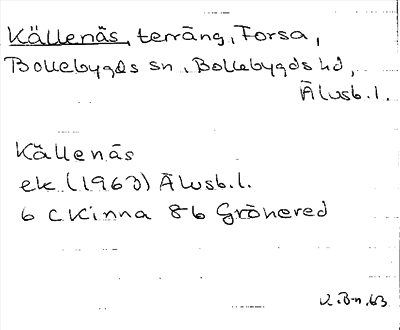 Källenäs, terräng, Forsa,
Bollebygds sn, Bollebygds hd,
Älvsb. l.
Källenäs
ek. (1963) Älvsb. l.
6 C Kinna 8b Grönered
63